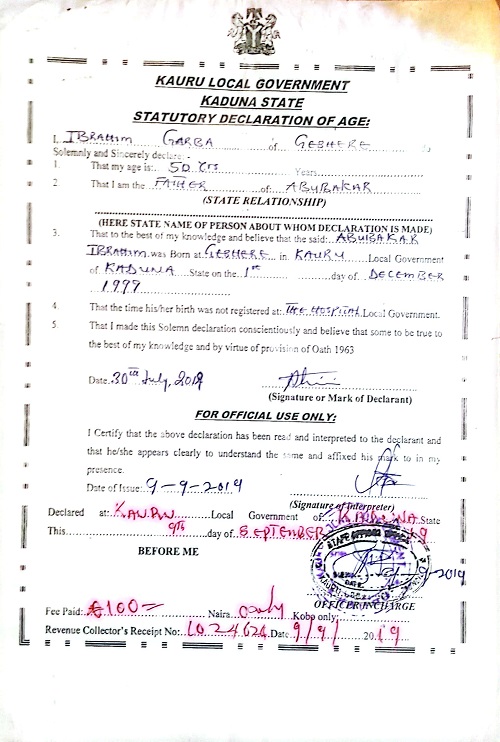 KAURU LOCAL GOVERNMENT
KADUNA STATE
STATUTORY DECLARATION OF AGE:
I, IBRAHIM GARBA of GEBHERE
Solemnly and Sincerely declare:-
1 That my age is: 50 YRS Years
2 That I am the FATHER of: ABUBAKAR
(STATE RELATIONSHIP)
(HERE STATE NAME OF PERSON ABOUT WHOM DECLARATION IS MADE)
3. That to the best of my knowledge and believe that the said: ABUBAKAR
IBRAHIM was Born at GEBHERE in KAURU Local Government
of KADUNA State on the 1st day of DECEMBER
1999
4. That the time his/her birth was not registered at: THE HOSPITAL Local Government.
5. That I made this Solemn declaration conscientiously and believe that some to be true to
the best of my knowledge and by virtue of provision of Oath 1963
Date. 30th July, 2019
(Signature or Mark of Declarant)
FOR OFFICIAL USE ONLY:
I Certify that the above declaration has been read and interpreted to the declarant and
that he/she appears clearly to understand the same and affixed his mark to in my
presence.
Date of Issue: 9-9-2019
(Signature of Interpreter)
Declared at: KAURU Local Government of KADUNA State
This 9th day of SEPTEMBER 19
BEFORE ME
9-2019
OFFICER IN CHARGE
Fee Paid: ₦100= Naira only Kobo only
Revenue Collector's Receipt No: 1024624 Date 9/9/ 2019